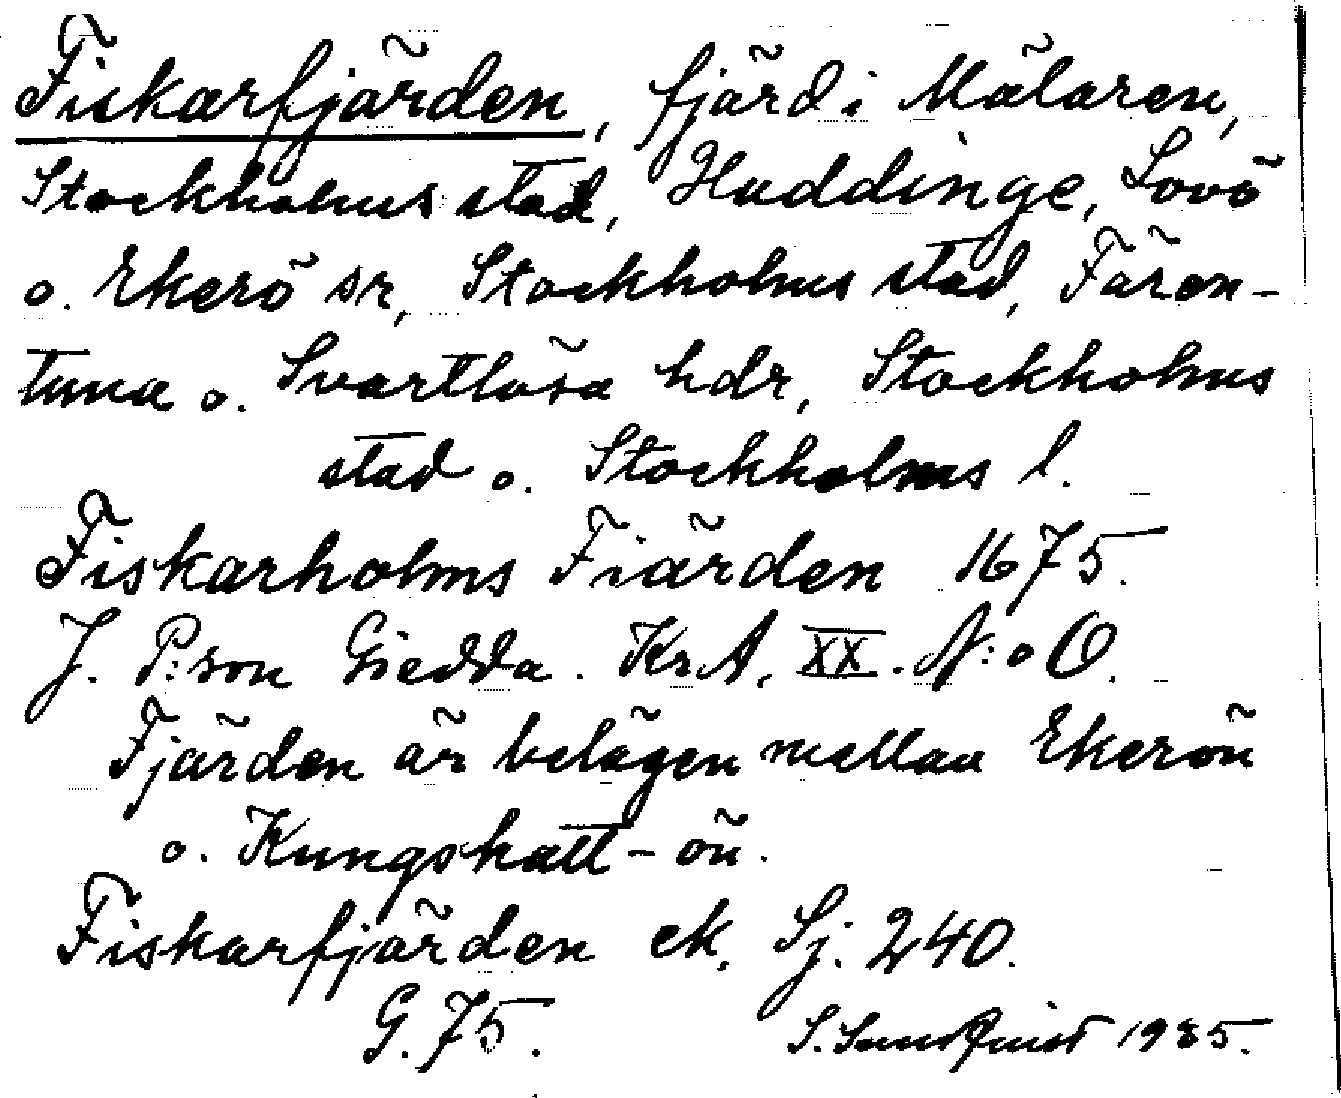 Fiskarfjärden, fjärd i Mälaren,
Stockholms stad, Huddinge, Lovö
o. Ekerö snr, Stockholms stad, Fären-
tuna o. Svartlösa hdr, Stockholms
stad o. Stockholms l.
Fiskarholms Fiärden 1675.
J. P:son Giedda. KrA, XX. N:o O.
Fjärden är belägen mellan Ekerön
o. Kungshatt-ön.
Fiskarfjärden ek. Sj. 240.
G. 75. S. Sundquist 1985.